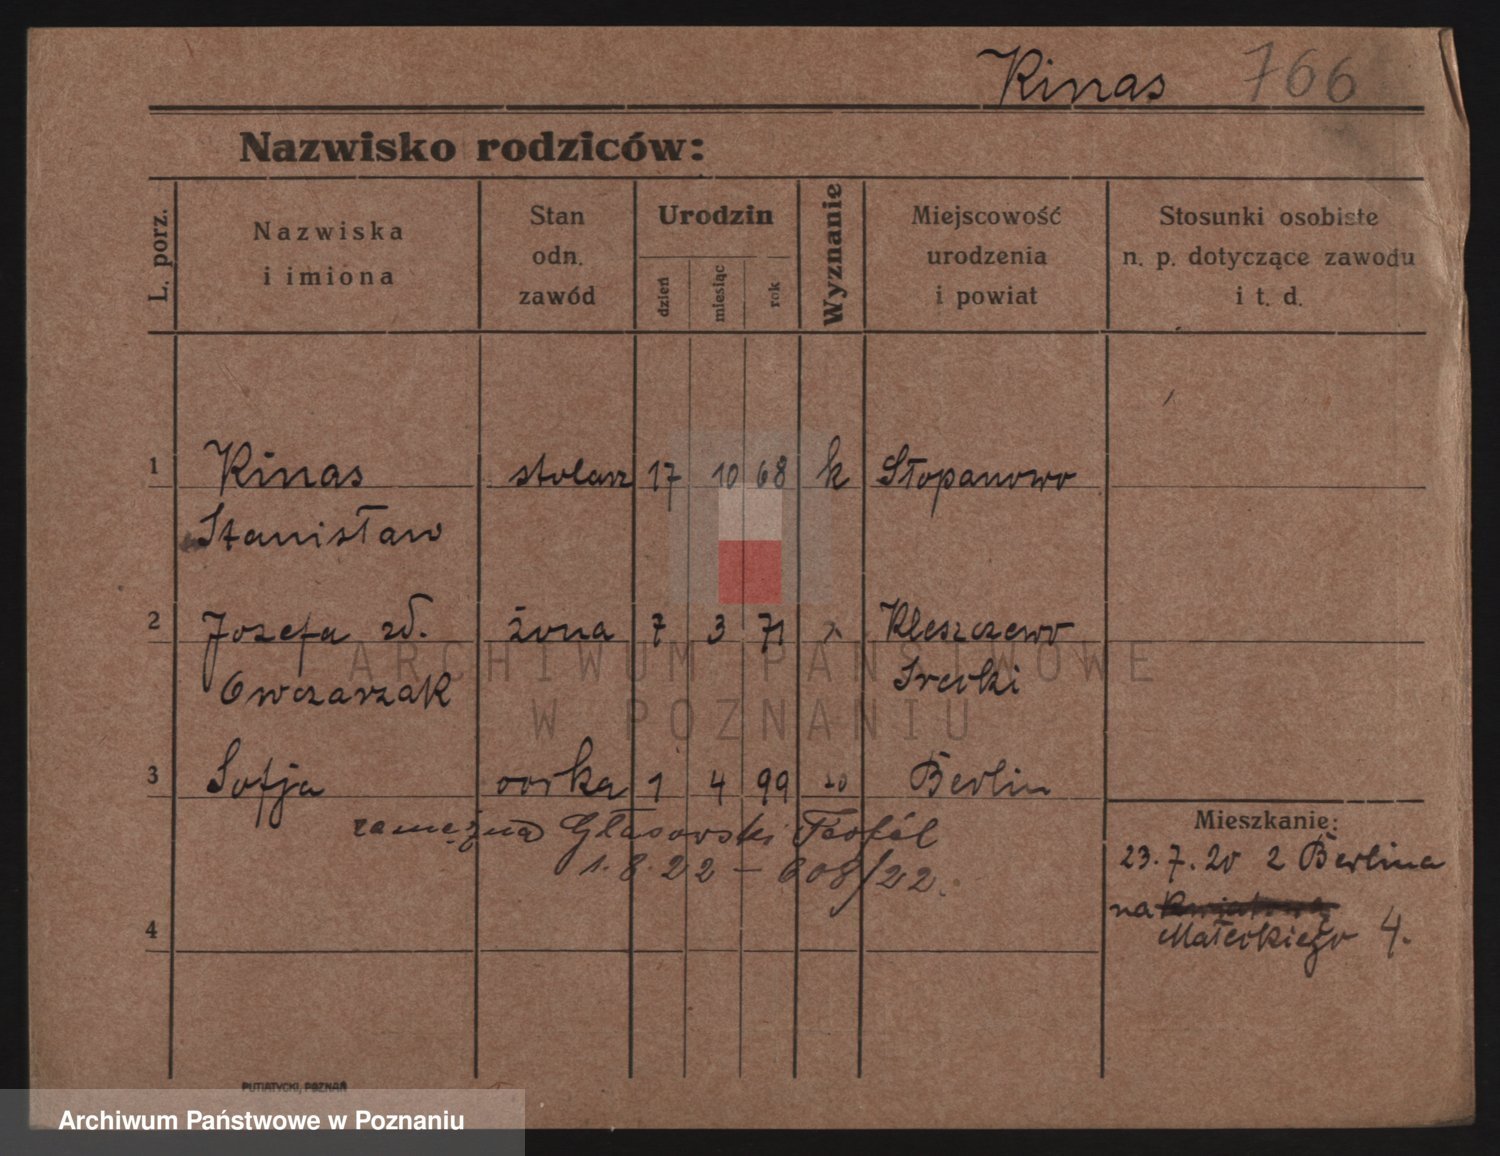 Kinas 766
Nazwisko rodziców:
L. porz.
Nazwiska
i imiona
Stan
odn.
zawód
Urodzin
dzień
miesiąc
rok
Wyznanie
Miejscowość
urodzenia
i powiat
Stosunki osobiste
n. p. dotyczące zawodu
i t. d.
1 Kinas stolarz 17 10 68 k Słopanowo
Stanisław
2 Jozefa zd. żona 7 3 71 Kleszczewo
Owczarzak Sredzki
ARCHIWUM PAŃSTWOWE
W POZNANIU
3 Sofja corka 1 4 99 Berlin
zamężna Głasowski Teofil
1.8.22 – 608/22.
Mieszkanie:
23.7.20 z Berlina
na
Małeckiego 4.
4
PUTIATYCKI, POZNAŃ
Archiwum Państwowe w Poznaniu